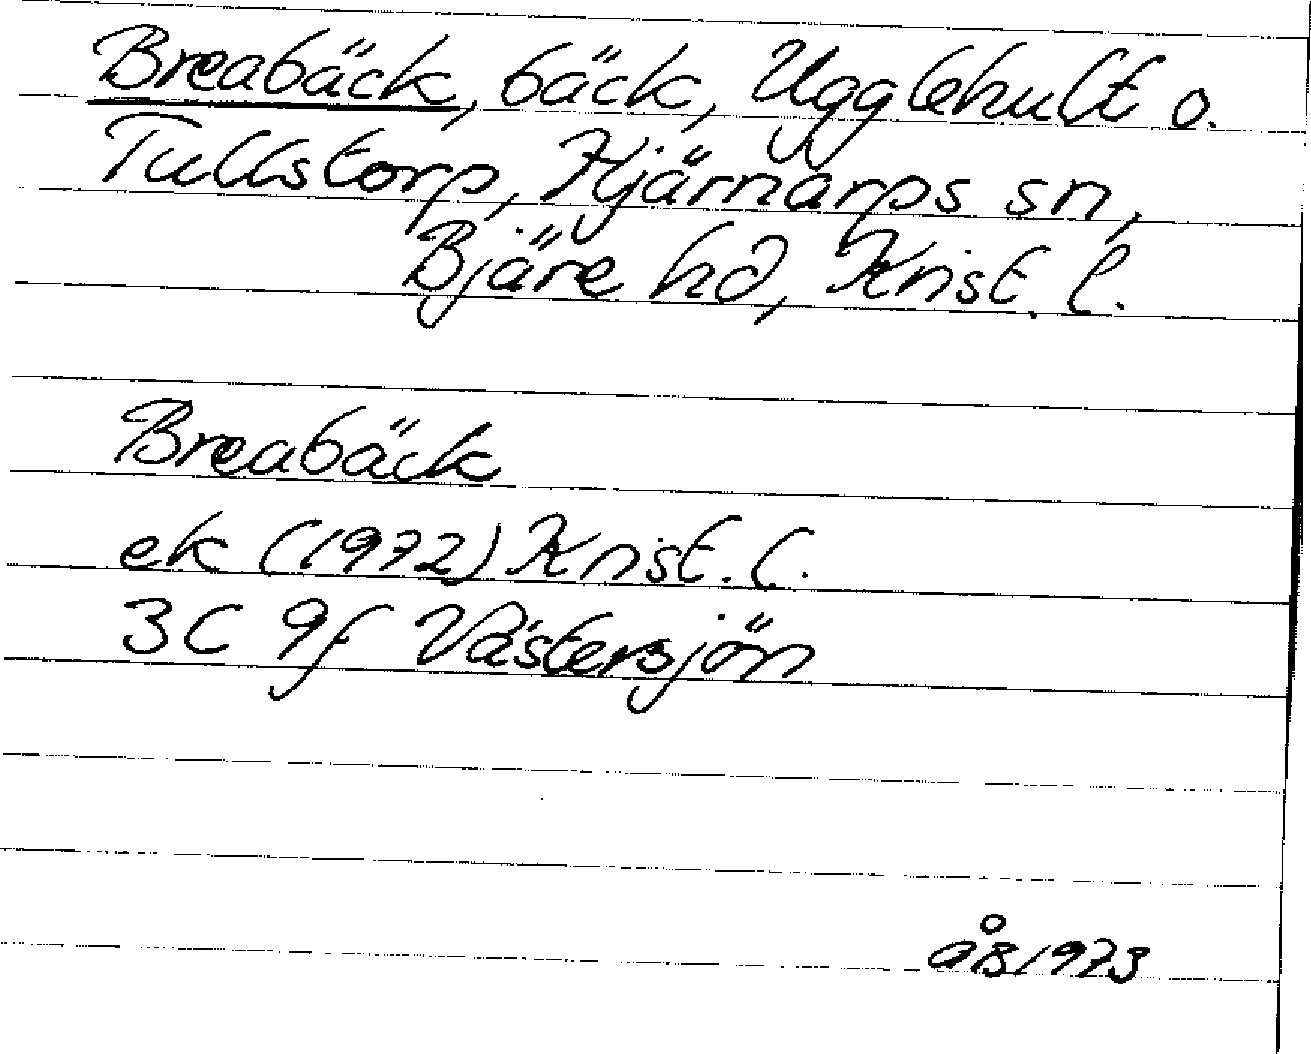 Breabäck, bäck, Ugglehult o.
Tullstorp, Hjärnarps sn,
Bjäre hd, Krist. l.
Breabäck
ek (1972) Krist. l.
3C 9f Västersjön
åB 1973